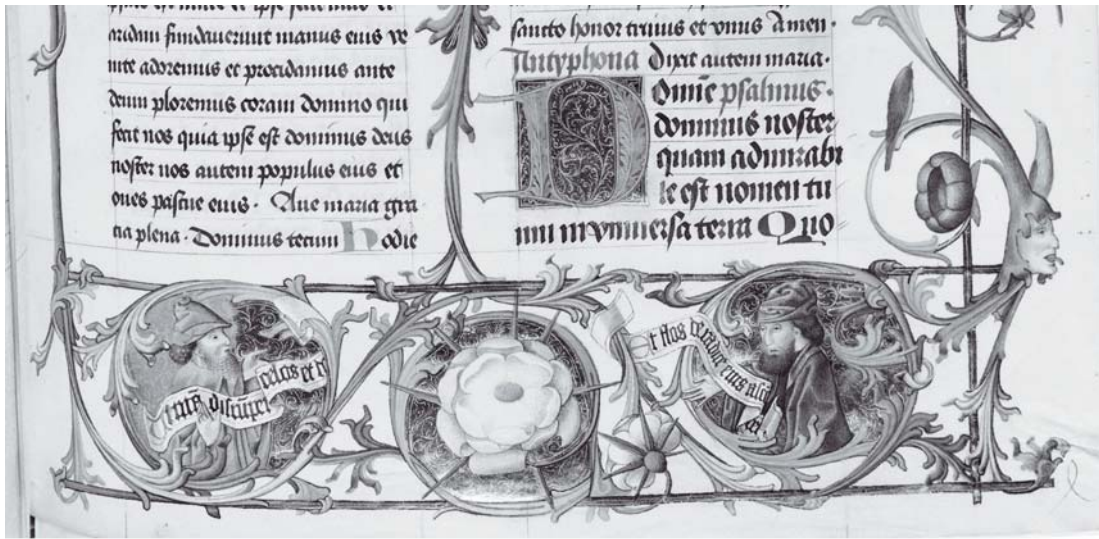 aridam fundaverunt manus eius ve
nite adoremus et procidamus ante
deum ploremus coram domino qui
fecit nos quia ipse est dominus deus
noster nos autem populus eius et
oues pascue eius. Aue maria gra
cia plena. Dominus tecum hodie
sancto honor trinus et vnus Amen.
Antyphona Dixit autem maria.
Domine psalmus.
dominus noster
quam admirabi
le est nomen tu
um in vniuersa terra Quo
celos et
Et flos de radice eius